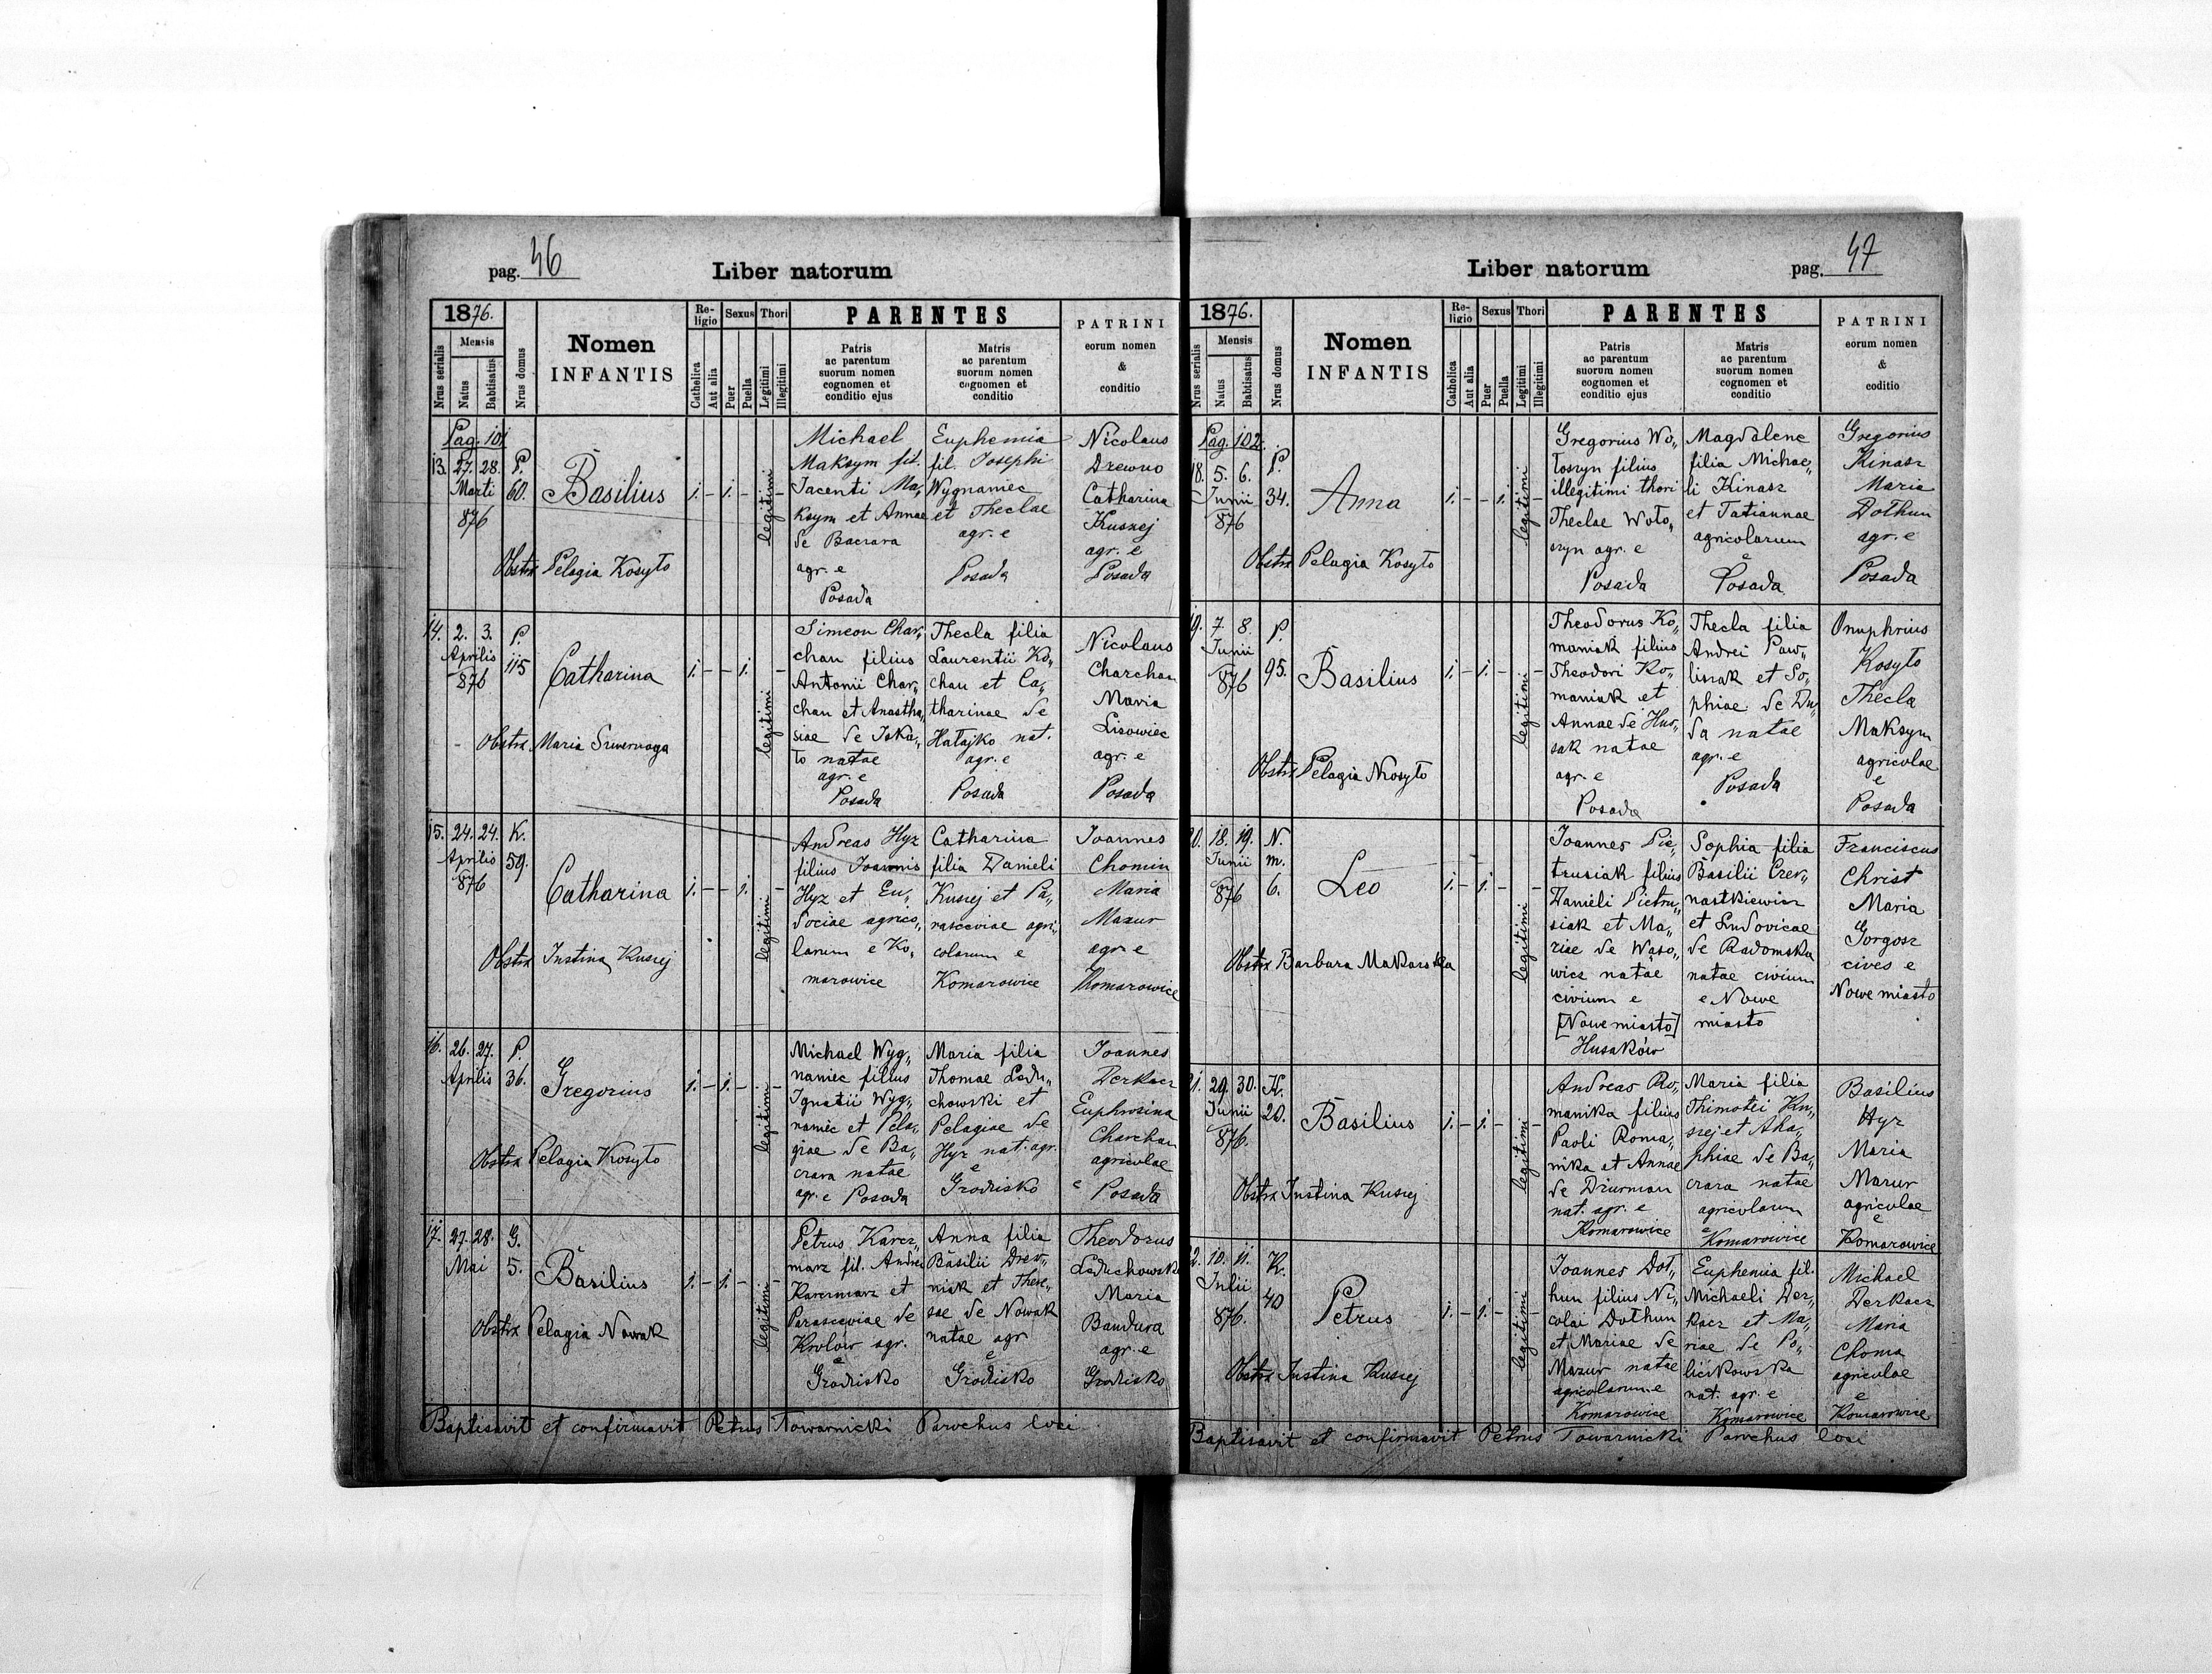 pag. 46
Liber natorum
1876.
Mensis
Nrus serialis
Natus
Babtisatus
Nrus domus
Nomen
INFANTIS
Religio
Catholica
Aut alia
Sexus
Puer
Puella
Thori
Legitimi
Illegitimi
PARENTES
Patris
ac parentum
suorum nomen
cognomen et
conditio ejus
Matris
ac parentum
suorum nomen
cognomen et
conditio
PATRINI
eorum nomen
&
conditio
Pag. 101
13. 27. 28. P.
Marti 60.
876
Basilius
1. – 1. – legitimi –
Obstrx Pelagia Kosyło
Michael
Maksym fil.
Jacenti Ma„
ksym et Annae
de Baczara
agr. e
Posada
Euphemia
fil. Josephi
Wygnaniec
et Theclae
agr. e
Posada
Nicolaus
Drewno
Catharina
Kuszej
agr. e
Posada
14. 2. 3. P.
Aprilis 115
876
Catharina
1. – – 1. legitimi –
Obstrx Maria
Simeon Char„
chan filius
Antonii Char„
chan et Anastha„
siae de Jska„
to natae
agr. e
Posada
Thecla filia
Laurentii Ko„
chan et Ca„
tharinae de
Hałajko nat.
agr. e
Posada
Nicolaus
Charchan
Maria
Lisowiec
agr. e
Posada
15. 24. 24. K.
Aprilis 59.
876
Catharina
1. – – 1. legitimi –
Obstrx Justina Kusiej
Andreas Hyz
filius Joannis
Hyz et Eu„
dociae agrico„
larum e Ko„
marowice
Catharina
filia Danieli
Kusiej et Pa„
rasceviae agri„
colarum e
Komarowice
Joannes
Chomin
Maria
Mazur
agr e
Komarowice
16. 26. 27. P.
Aprilis 36.
Gregorius
1. – 1. – legitimi –
Obstrx Pelagia Kosyło
Michael Wyg„
naniec filius
Ignatii Wyg„
naniec et Pela„
giae de Ba„
czara natae
agr. e Posada
Maria filia
Thomae Ladu„
chowski et
Pelagiae de
Hyz nat. agr.
e
Grodzisko
Joannes
Derkacz
Euphrosina
Charchan
agricolae
e Posada
17. 27. 28. G.
Mai 5.
Basilius
1. – 1. – legitimi –
Obstrx Pelagia Nowak
Petrus Karcz„
marz fil. Andrei
Karczmarz et
Parasceviae de
Królów agr.
e
Grodzisko
Anna filia
Basilii Drew„
niak et There„
sae de Nowak
natae agr
e
Grodzisko
Theodorus
Laduchowski
Maria
Bandura
agr. e
Grodzisko
Baptisavit et confirmavit Petrus Towarnicki Parochus loci
Liber natorum
pag. 47
1876.
Mensis
Nrus serialis
Natus
Babtisatus
Nrus domus
Nomen
INFANTIS
Religio
Catholica
Aut alia
Sexus
Puer
Puella
Thori
Legitimi
Illegitimi
PARENTES
Patris
ac parentum
suorum nomen
cognomen et
conditio ejus
Matris
ac parentum
suorum nomen
cognomen et
conditio
PATRINI
eorum nomen
&
coditio
Pag. 102.
18. 5. 6. P.
Junii 34.
876
Anna
1. – – 1. legitimi –
Obstrx Pelagia Kosyło
Gregorius Wo„
łoszyn filius
illegitimi thori
Theclae Woło„
szyn agr. e
Posada
Magdalene
filia Michae„
li Kinasz
et Tatiannae
agricolarum
e
Posada
Gregorius
Kinasz
Maria
Dołhun
agr. e
Posada
19. 7 8. P.
Junii 95.
876
Basilius
1. – 1. – legitimi –
Obstrx Pelagia Kosyło
Theodorus Ko„
maniak filius
Theodori Ko„
maniak et
Annae de Hus„
sak natae
agr. e
Posada
Thecla filia
Andrei Paw„
lisiak et So„
phiae de Du„
da natae
agr. e
Posada
Onuphrius
Kosyło
Thecla
Maksym
agricolae
e
Posada
20. 18. 19. N.
Junii m.
876 6.
Leo
1. – 1. – legitimi –
Obstrx Barbara Makarska
Joannes Pie„
trusiak filius
Danieli Pietru„
siak et Ma„
riae de Wąso„
wicz natae
civium e
[Nowe miasto]
Husaków
Sophia filia
Basilii Czer„
nastkiewicz
et Ludovicae
de Radomska
natae civium
e Nowe
miasto
Franciscus
Christ
Maria
Gorgosz
cives e
Nowe miasto
21. 29. 30. K.
Junii 20.
876.
Basilius
1. – 1. – legitimi –
Obstrx Justina Kusiej
Andreas Ro„
manika filius
Paoli Roma„
nika et Annae
de Dziurman
nat. agr. e
Komarowice
Maria filia
Thimotei Ku„
siej et Aha„
phiae de Ba„
czara natae
agricolarum
e
Komarowice
Basilius
Hyz
Maria
Mazur
agricolae
e
Komarowice
22. 10. 11. K.
Julii 40
876.
Petrus
1. – 1. – legitimi –
Obstrx Justina Kusiej
Joannes Doł„
hun filius Ni„
colai Dołhun
et Mariae de
Mazur natae
agricolarum e
Komarowice
Euphemia fil.
Michaeli Der„
kacz et Ma„
riae de Po„
liczkowska
nat. agr. e
Komarowice
Michael
Derkacz
Maria
Choma
agricolae
e
Komarowice
Baptisavit et confirmavit Petrus Towarnicki Parochus loci